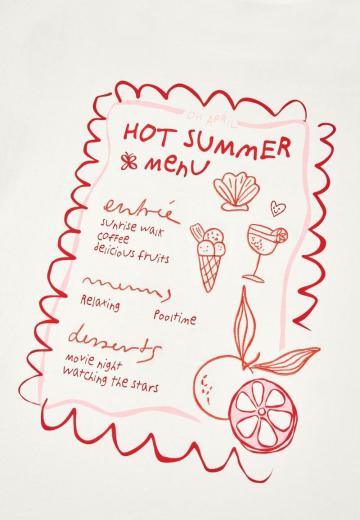 OH APRIL
HOT SUMMER
menu
entrée
sunrise walk
coffee
delicious fruits
menus
Relaxing
Pooltime
desserts
movie night
watching the stars